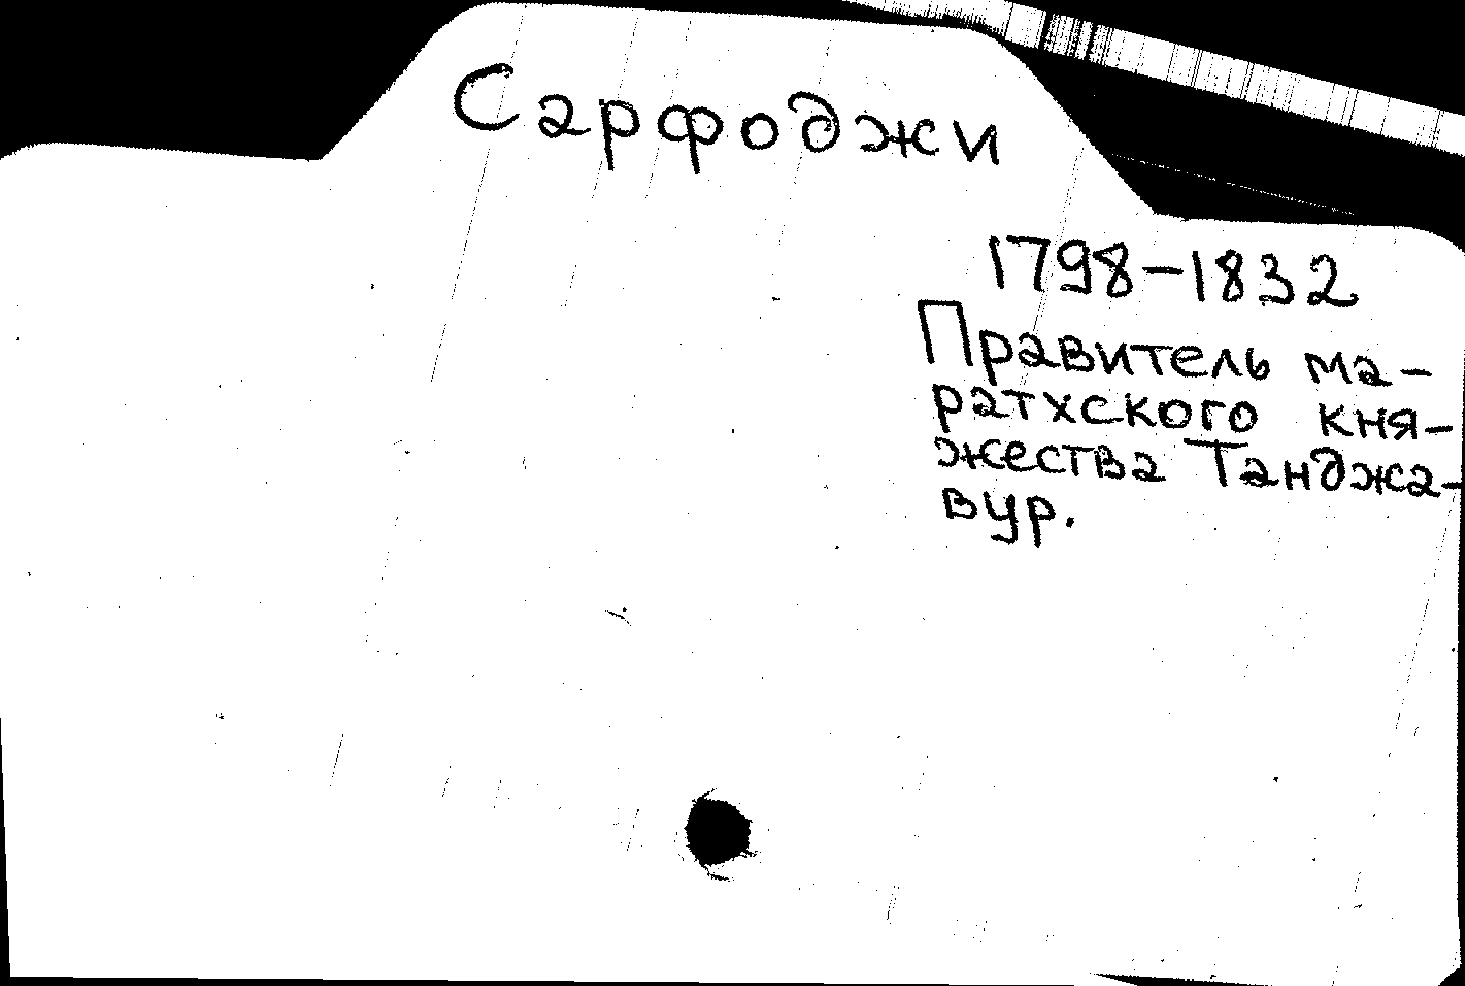 Сарфоджи
1798-1832
Правитель ма-
ратхского кня-
жества Танджа-
вур.